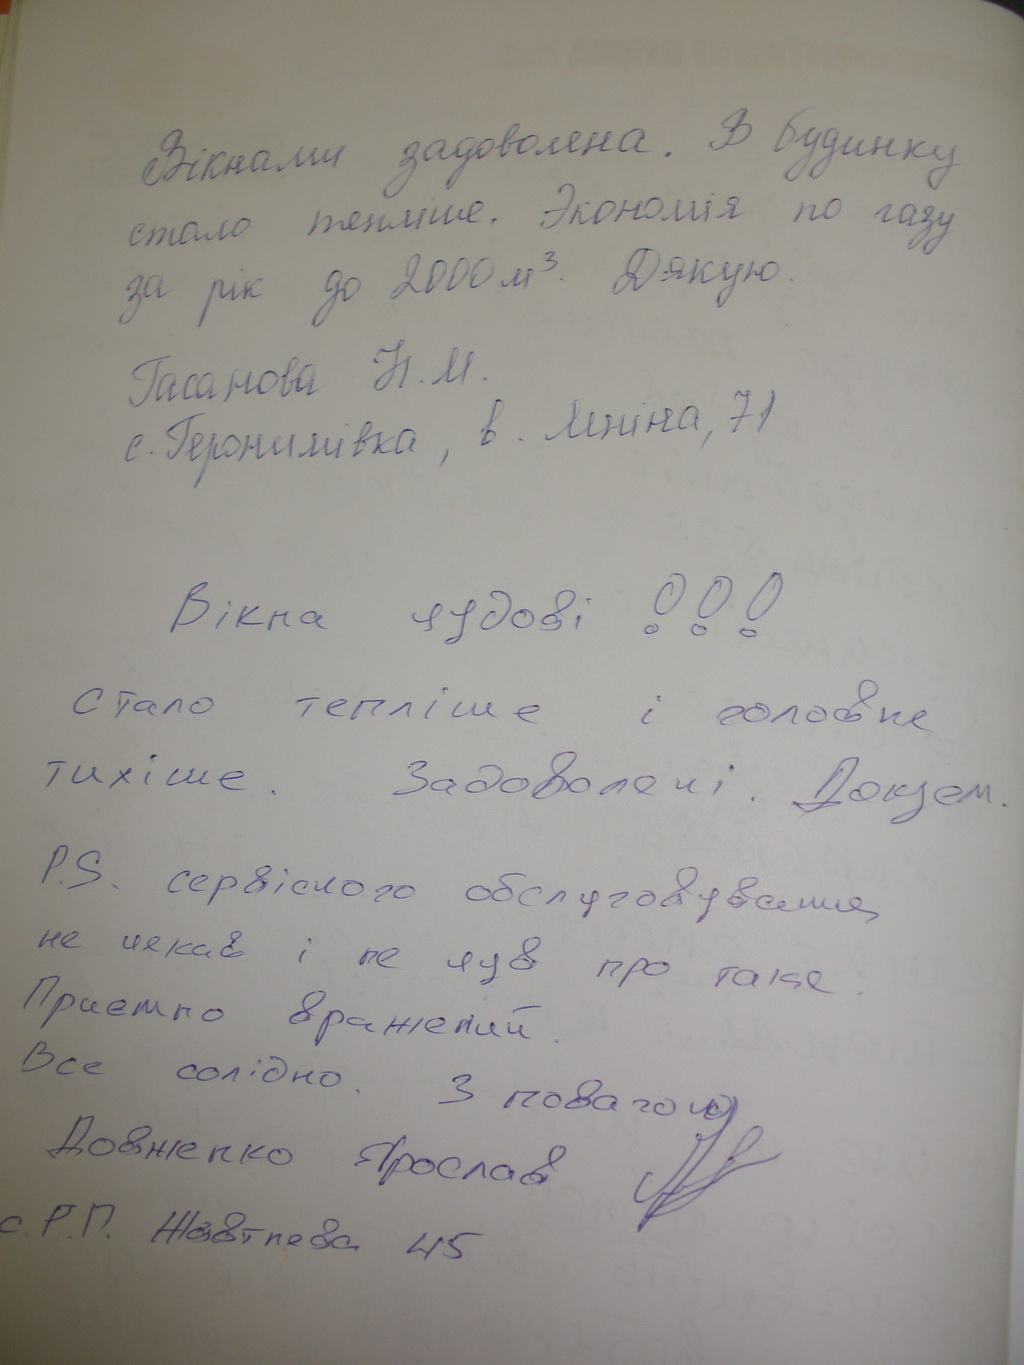 Вікнами задоволена. В будинку
стало тепліше. Экономія по газу
за рік до 2000 м³. Дякую.
Гасанова Н.М.
с. Геронимівка, в. Леніна, 71
Вікна чудові !!!
Стало тепліше і головне
тихіше. Задоволені. Дякуєм.
P.S. сервісного обслуговування
не чекав і не чув про таке.
Приємно вражений.
Все солідно. З повагою
Довженко Ярослав
с. Р.П. Жовтнева 45